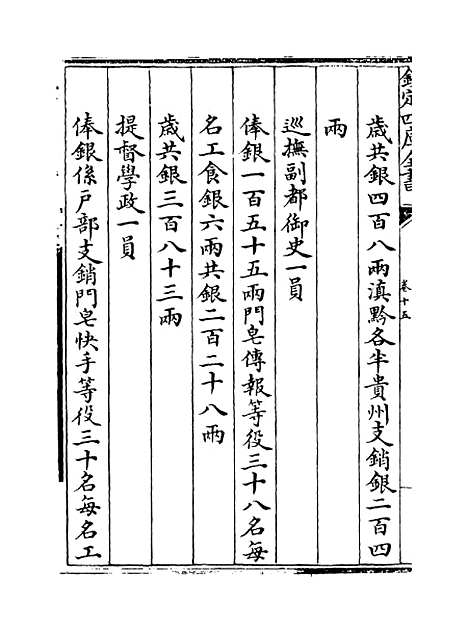 欽定四庫全書
卷十五
歲共銀四百八兩滇黔各半貴州支銷銀二百四
兩
巡撫副都御史一員
俸銀一百五十五兩門皂傳報等役三十八名每
名工食銀六兩共銀二百二十八兩
歲共銀三百八十三兩
提督學政一員
俸銀係戶部支銷門皂快手等役三十名每名工